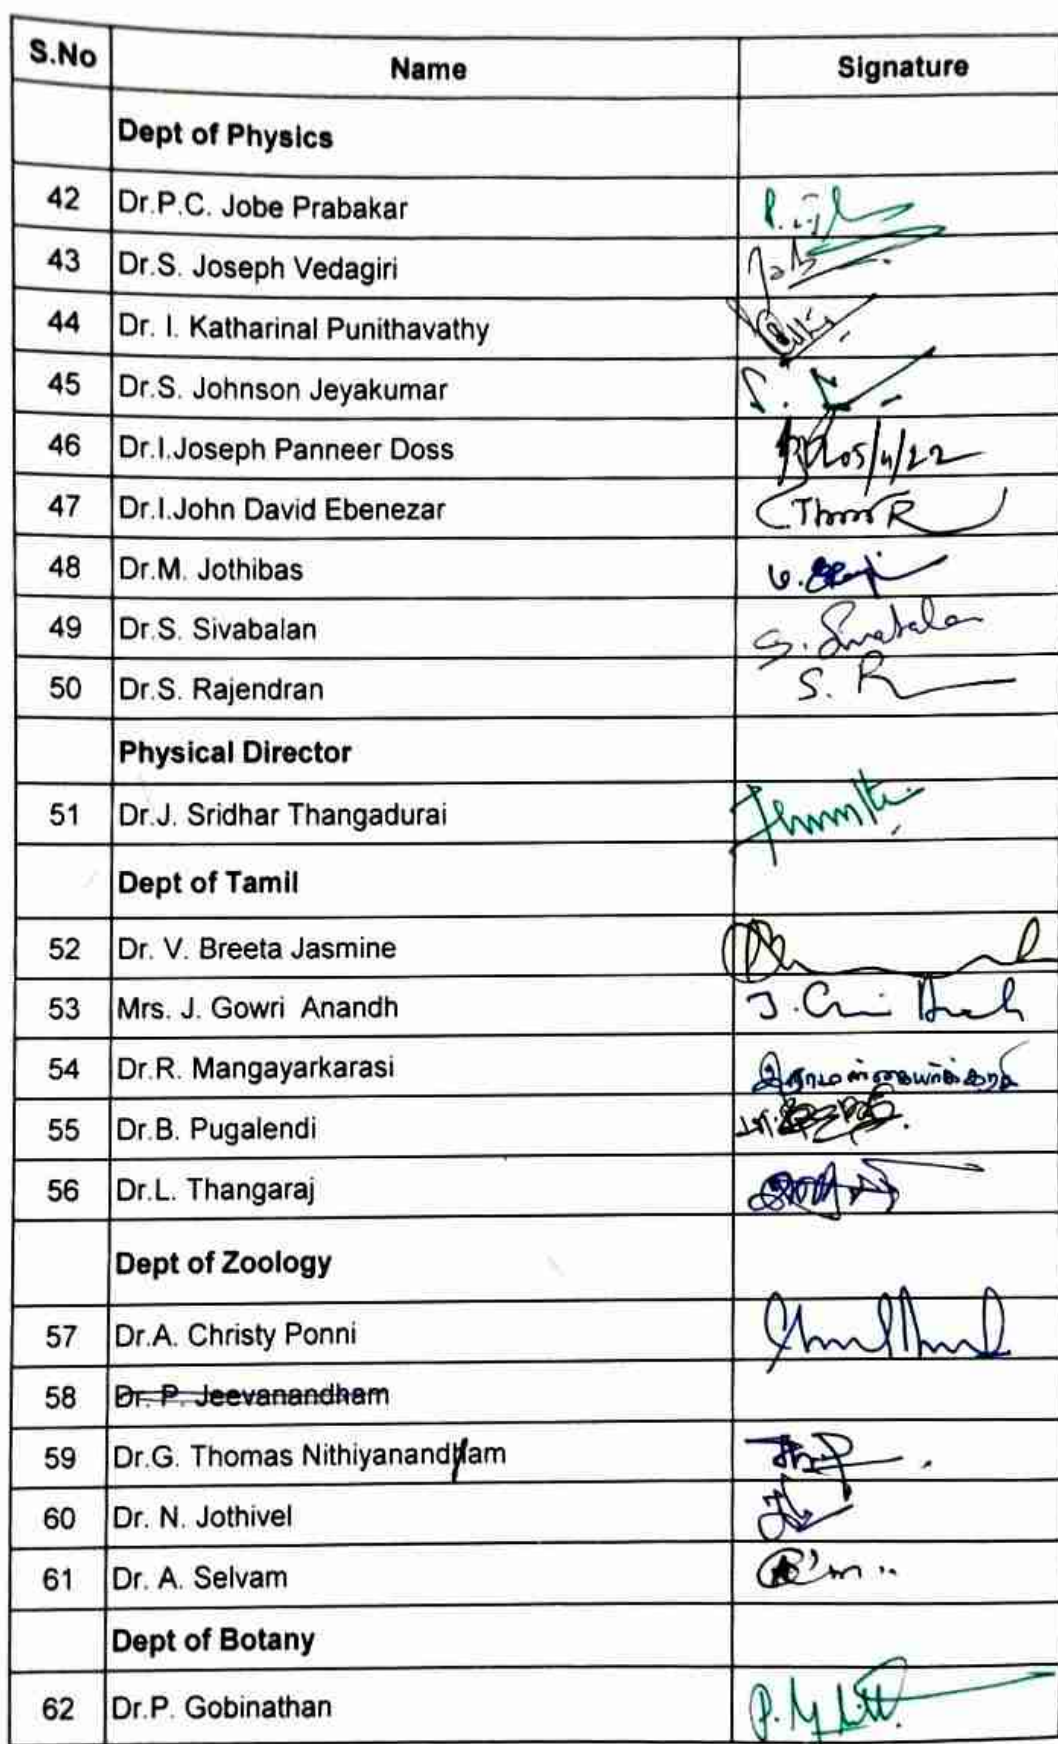 S.No Name Signature
Dept of Physics
42 Dr.P.C. Jobe Prabakar
43 Dr.S. Joseph Vedagiri
44 Dr. I. Katharinal Punithavathy
45 Dr.S. Johnson Jeyakumar
46 Dr.I.Joseph Panneer Doss 05/4/22
47 Dr.I.John David Ebenezar
48 Dr.M. Jothibas
49 Dr.S. Sivabalan S. Sivabalan
50 Dr.S. Rajendran S. R
Physical Director
51 Dr.J. Sridhar Thangadurai
Dept of Tamil
52 Dr. V. Breeta Jasmine
53 Mrs. J. Gowri Anandh
54 Dr.R. Mangayarkarasi இராமங்கையர்க்கரசி
55 Dr.B. Pugalendi
56 Dr.L. Thangaraj
Dept of Zoology
57 Dr.A. Christy Ponni
58 Dr. P. Jeevanandham
59 Dr.G. Thomas Nithiyanandham
60 Dr. N. Jothivel
61 Dr. A. Selvam
Dept of Botany
62 Dr.P. Gobinathan